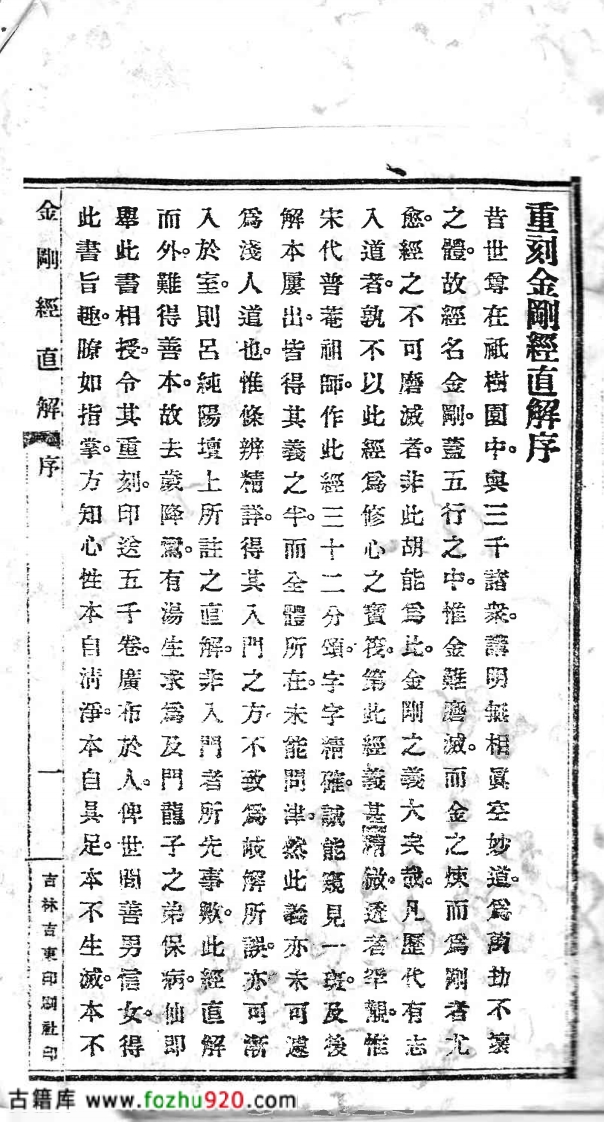 重刻金剛經直解序
昔世尊在祇樹園中。與三千諸衆。講明無相眞空妙道。爲萬劫不壞
之體。故經名金剛。蓋五行之中。惟金難磨滅。而金之煉而爲剛者尤
愈。經之不可磨滅者。非此胡能爲比。金剛之義大矣哉。凡歷代有志
入道者。孰不以此經爲修心之寶筏。第此經義甚精微。透者罕覯。惟
宋代普菴祖師。作此經三十二分頌。字字精確。誠能窺見一斑。及後
解本屢出。皆得其義之半。而全體所在。未能問津。然此義亦未可遽
爲淺人道也。惟條辨精詳。得其入門之方。不致爲岐解所誤。亦可漸
入於室。則呂純陽壇上所註之直解。非入門者所先事歟。此經直解
而外。難得善本。故去歲降鸞。有湯生求爲及門龍子之弟保病。仙即
舉此書相授。令其重刻。印送五千卷。廣布於人。俾世間善男信女。得
此書旨趣。瞭如指掌。方知心性本自淸淨。本自具足。本不生滅。本不
金剛經直解 序 一 吉林吉東印刷社印
古籍库 www.fozhu920.com